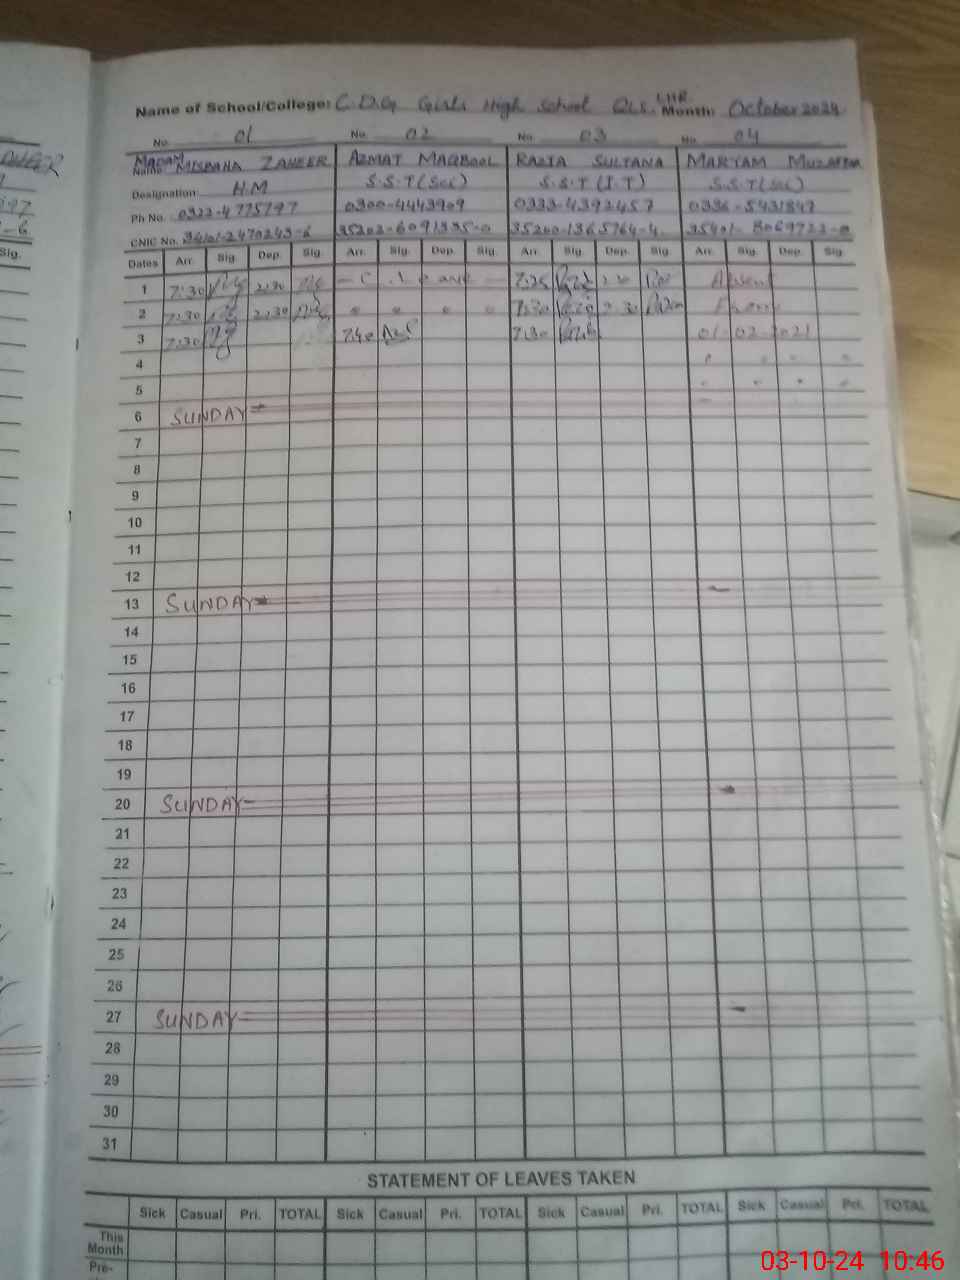 LHR
Name of School/College: C.D.G Girls High School QLS. Month: October 2024
No. 01 No. 02 No. 03 No. 04
Name: MADAM MISBAHA ZAHEER AZMAT MAQBOOL RAZIA SULTANA MARYAM MUZAFFAR
Designation: H.M S.S.T (Sci) S.S.T (I.T) S.S.T (Sci)
Ph No. 0323-4775797 0300-4443909 0333-4392457 0336-5431847
CNIC No. 34101-2470243-6 35202-6091335-0 35200-1365764-4 35401-8069723-0
Dates Arr. Sig. Dep. Sig. Arr. Sig. Dep. Sig. Arr. Sig. Dep. Sig. Arr. Sig. Dep. Sig.
1 7:30 2:30 C. Leave 7:25 2:30 Absent
2 7:30 2:30 7:30 2:30 From
3 7:30 7:40 7:30 01-02-2021
4
5
6 SUNDAY
7
8
9
10
11
12
13 SUNDAY
14
15
16
17
18
19
20 SUNDAY
21
22
23
24
25
26
27 SUNDAY
28
29
30
31
STATEMENT OF LEAVES TAKEN
Sick Casual Pri. TOTAL Sick Casual Pri. TOTAL Sick Casual Pri. TOTAL Sick Casual Pri. TOTAL
This
Month
Pre-
03-10-24 10:46